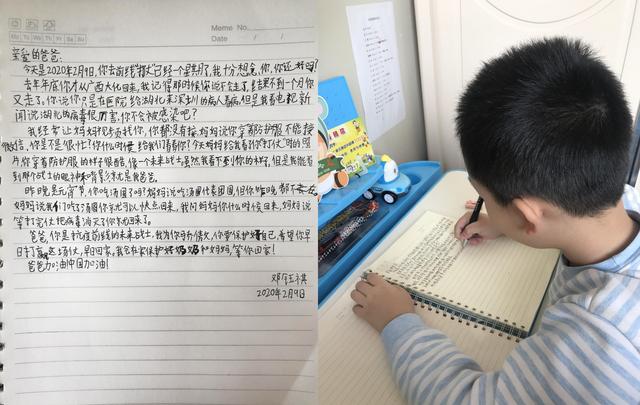 Memo No.
Mo Tu We Th Fr Sa Su
Date / /
亲爱的爸爸:
今天是2020年2月9日,你去前线"打仗"已经一个星期了,我十分想念你,你还好吗?
去年年底你才从广西大化回来,我记得那时候你说不走了,结果不到一个月你
又走了,你说你只是在医院给湖北来深圳的病人看病,但是我看电视新
闻说湖北的病毒很厉害,你不会被感染吧?
我经常让妈妈视频找你,你都没有接,妈妈说你穿着防护服不能接
微信,你是不是很忙?你什么时候给我们看看你?今天妈妈给我看你"打仗"时的照
片,你穿着防护服的样子很酷,像一个未来战士,虽然我看不到你的样子,但是我能看
到那个战士的眼神和背影就是我爸爸。
昨晚是元宵节,你吃汤圆了吗?妈妈说吃汤圆代表团圆,但你昨晚都不在
妈妈说我们吃了汤圆你就可以快点回来,我问妈妈你什么时候回来,妈妈说
等打完仗把病毒消灭了你就回来了。
爸爸,你是抗疫前线的未来战士,我为你骄傲,你要保护好自己,希望你早
日打赢这场仗,早日回家,我会在家保护好奶奶和妈妈,等你回家!
爸爸加油!中国加油!
2020年2月9日